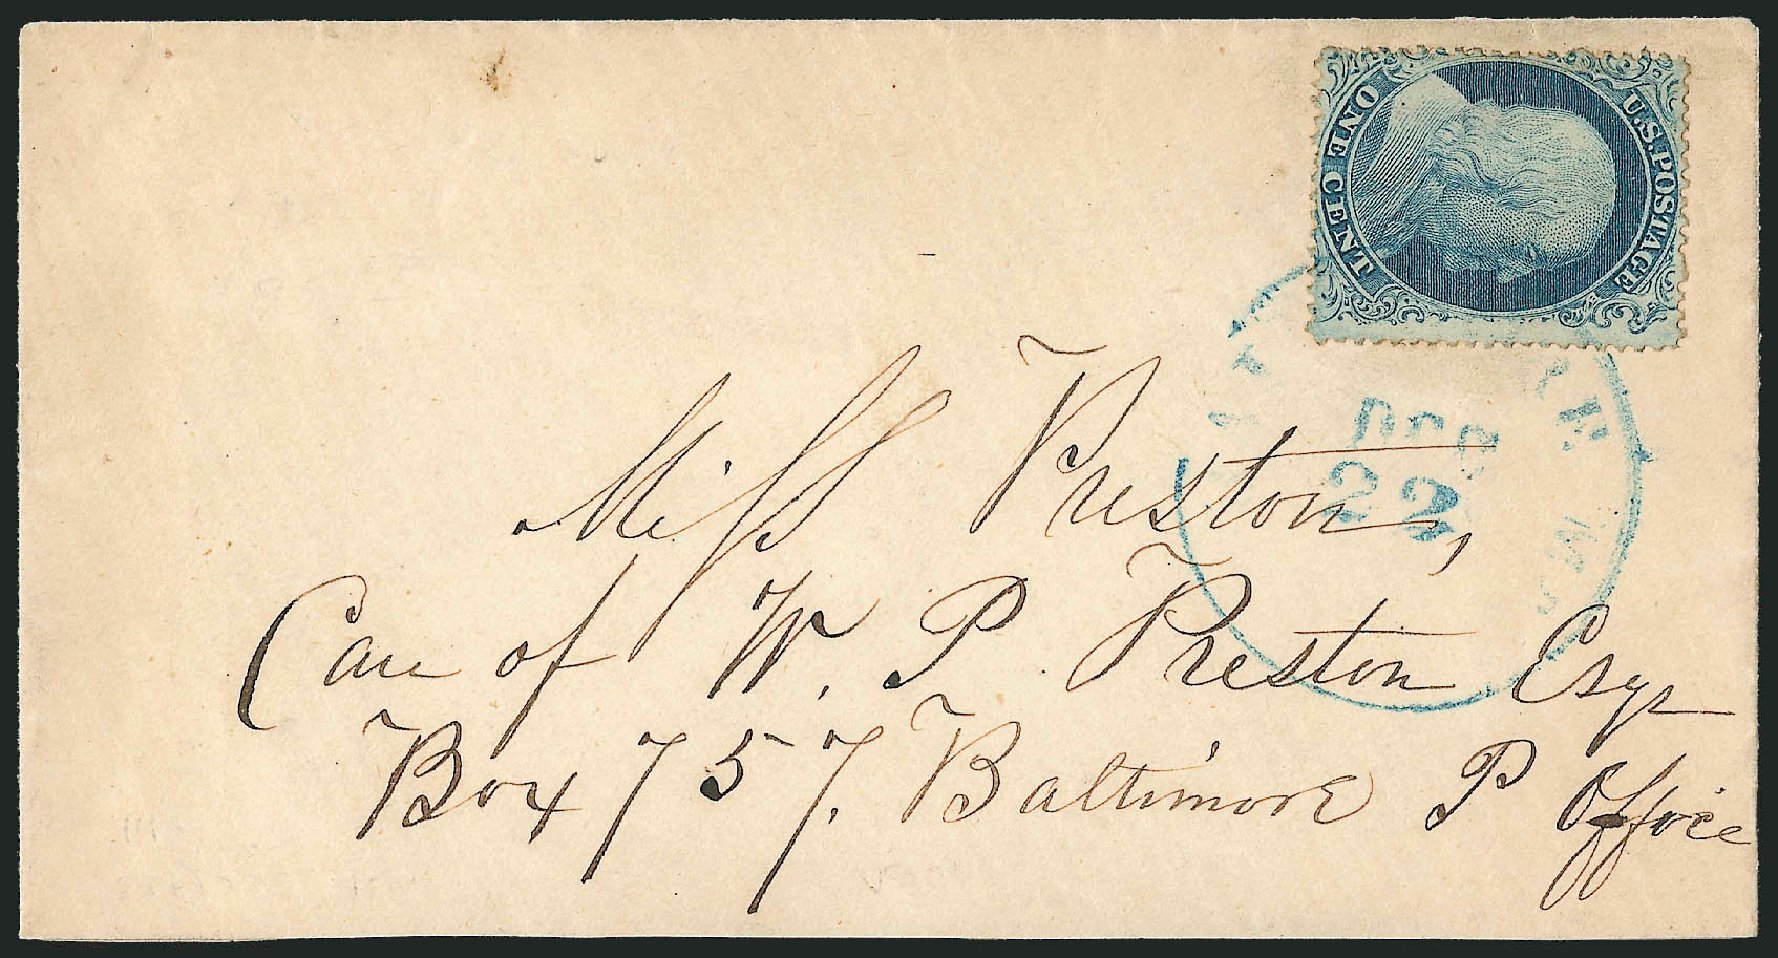 U.S. POSTAGE
ONE CENT
DEC
22
Miss Preston,
Care of W. P. Preston Esqr
Box 757. Baltimore P Office